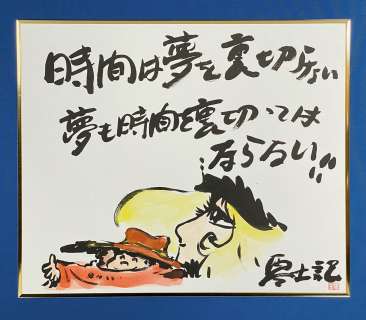 時間は夢を裏切らない
夢も時間を裏切っては
…ならない!!
零士記